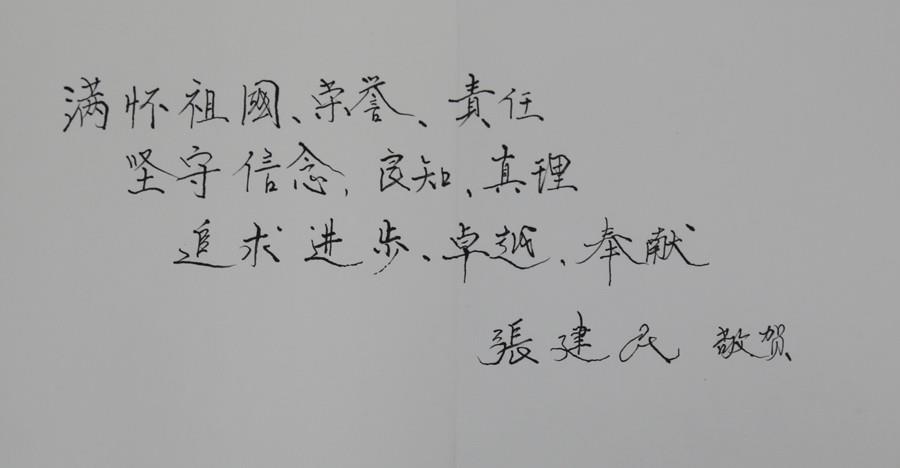 满怀祖國、荣誉、責任
坚守信念、良知、真理
追求进步、卓越、奉献
張建民 敬贺